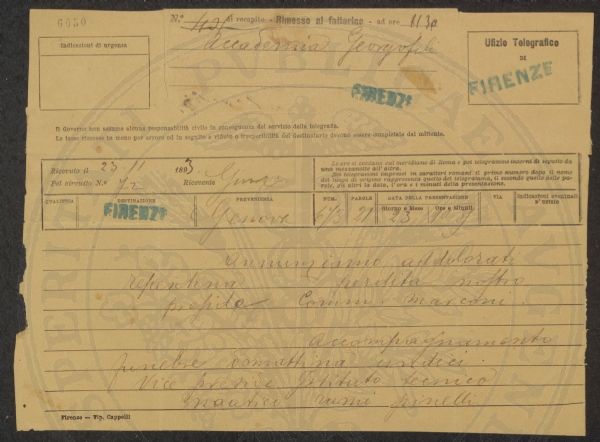 6030
N.° di recapito - Rimesso al fattorino - ad ore 11.30
Accademia Georgofili
Indicazioni di urgenza
Ufizio Telegrafico
DI
FIRENZE
FIRENZE
Il Governo non assume alcuna responsabilità civile in conseguenza del servizio della telegrafia.
Le tasse riscosse in meno per errore od in seguito a rifiuto o irreperibilità del destinatario devono essere completate dal mittente.
Ricevuto il 23 11 1893
Pel circuito N.° 72 Ricevente
Le ore si contano sul meridiano di Roma e pei telegrammi interni di seguito da una mezzanotte all'altra.
Nei telegrammi impressi in caratteri romani il primo numero dopo il nome del luogo di origine rappresenta quello del telegramma, il secondo quello delle parole, gli altri la data, l'ora e i minuti della presentazione.
QUALIFICA DESTINAZIONE PROVENIENZA NUM. PAROLE DATA DELLA PRESENTAZIONE Giorno e Mese Ore e Minuti VIA Indicazioni eventuali d'ufizio
FIRENZE Genova 21 23
Annunziamo addolorati
repentina perdita nostro
preside Comm. Marconi.
accompagnamento
funebre domattina undici.
Vice preside Istituto tecnico
nautico pinelli
Firenze — Tip. Cappelli